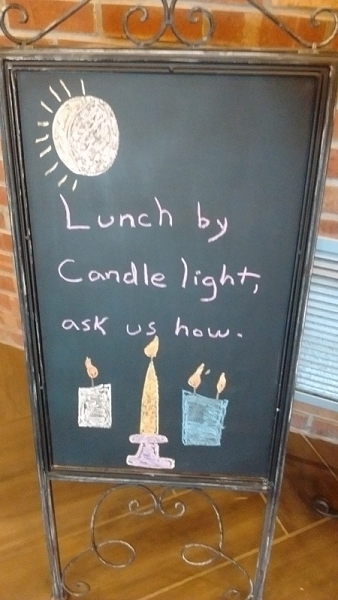 Lunch by
Candle light,
ask us how.